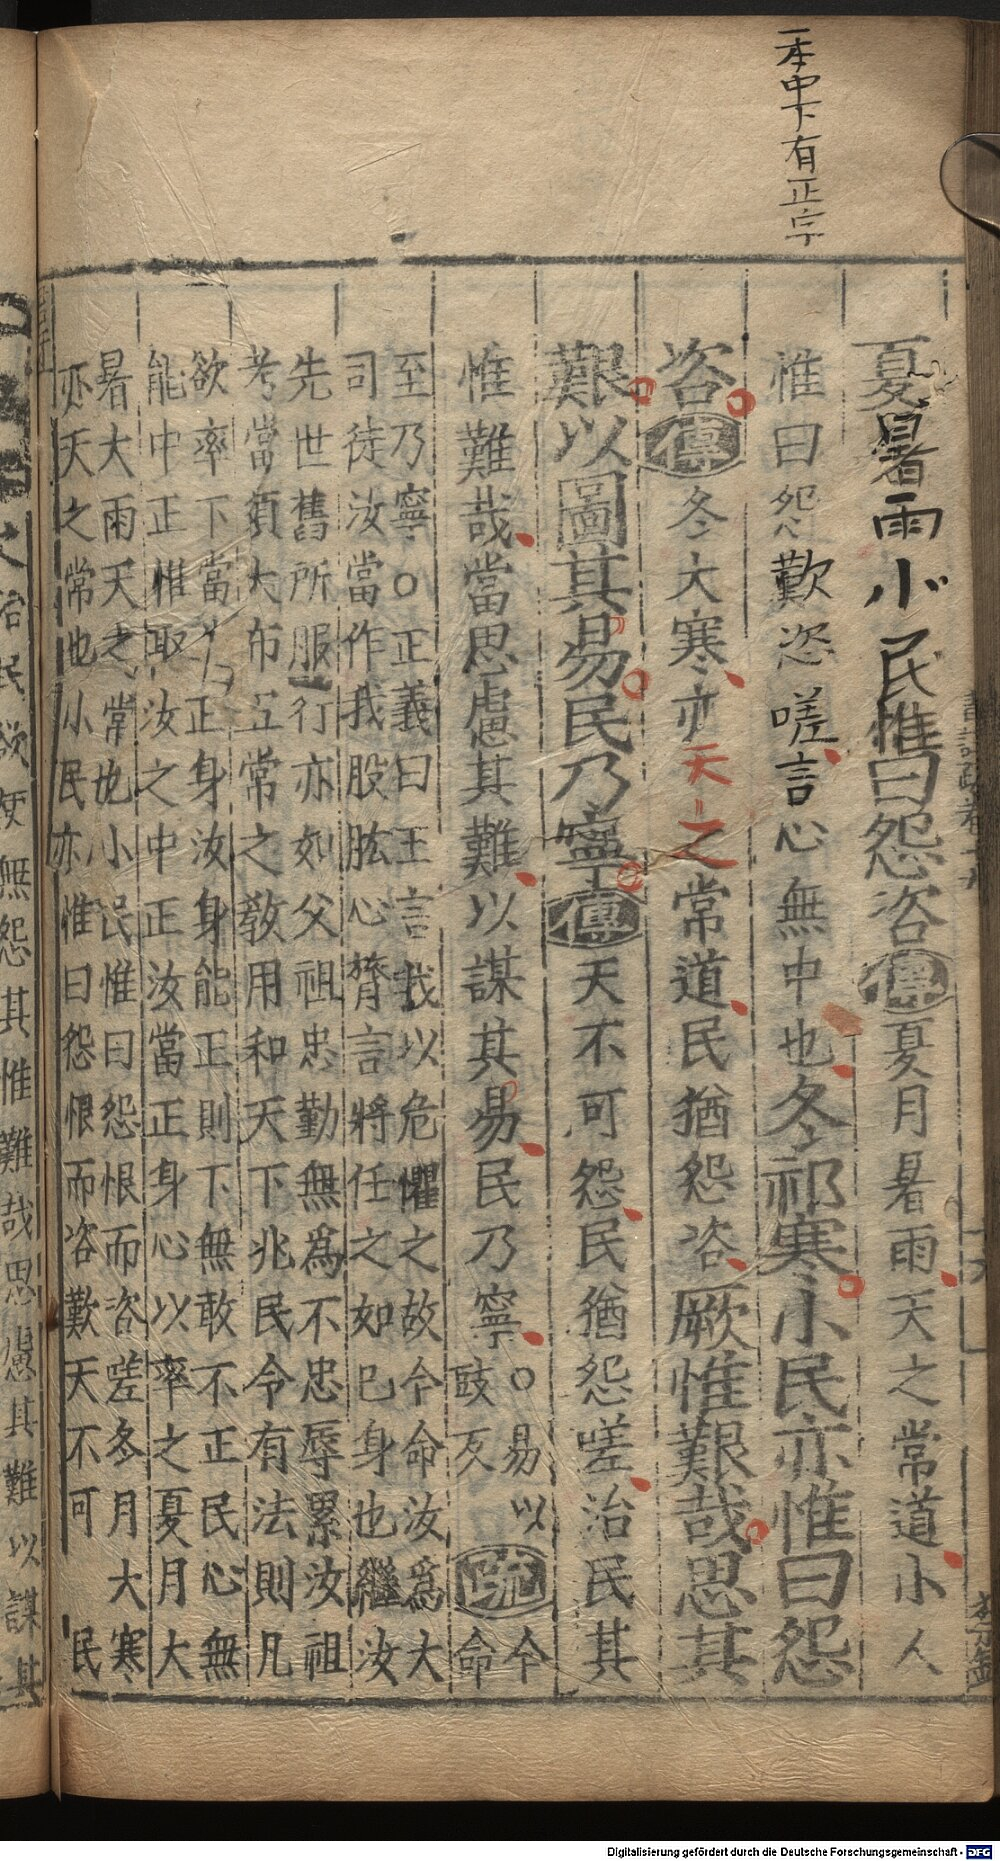 一本中下有正字
夏暑雨小民惟曰怨咨傳夏月暑雨天之常道小人
惟曰怨歎咨嗟言心無中也冬祁寒小民亦惟曰怨
咨傳冬大寒亦天之常道民猶怨咨厥惟艱哉思其
艱以圖其易民乃寧傳天不可怨民猶怨嗟治民其
惟難哉當思慮其難以謀其易民乃寧○易以
豉反
疏
今
命
至乃寧○正義曰王言我以危懼之故今命汝爲大
司徒汝當作我股肱心膂言將任之如已身也繼汝
先世舊所服行亦如父祖忠勤無爲不忠辱累汝祖
考當須大布五常之教用和天下兆民令有法則凡
欲率下當正身汝身能正則下無敢不正民心無
能中正惟取汝之中正汝當正身心以率之夏月大
暑大雨天之常也小民惟曰怨恨而咨嗟冬月大寒
亦天之常也小民亦惟曰怨恨而咨歎天不可民
治民欲使無怨其惟難哉思慮其難以謀其
Digitalisierung gefördert durch die Deutsche Forschungsgemeinschaft - DFG